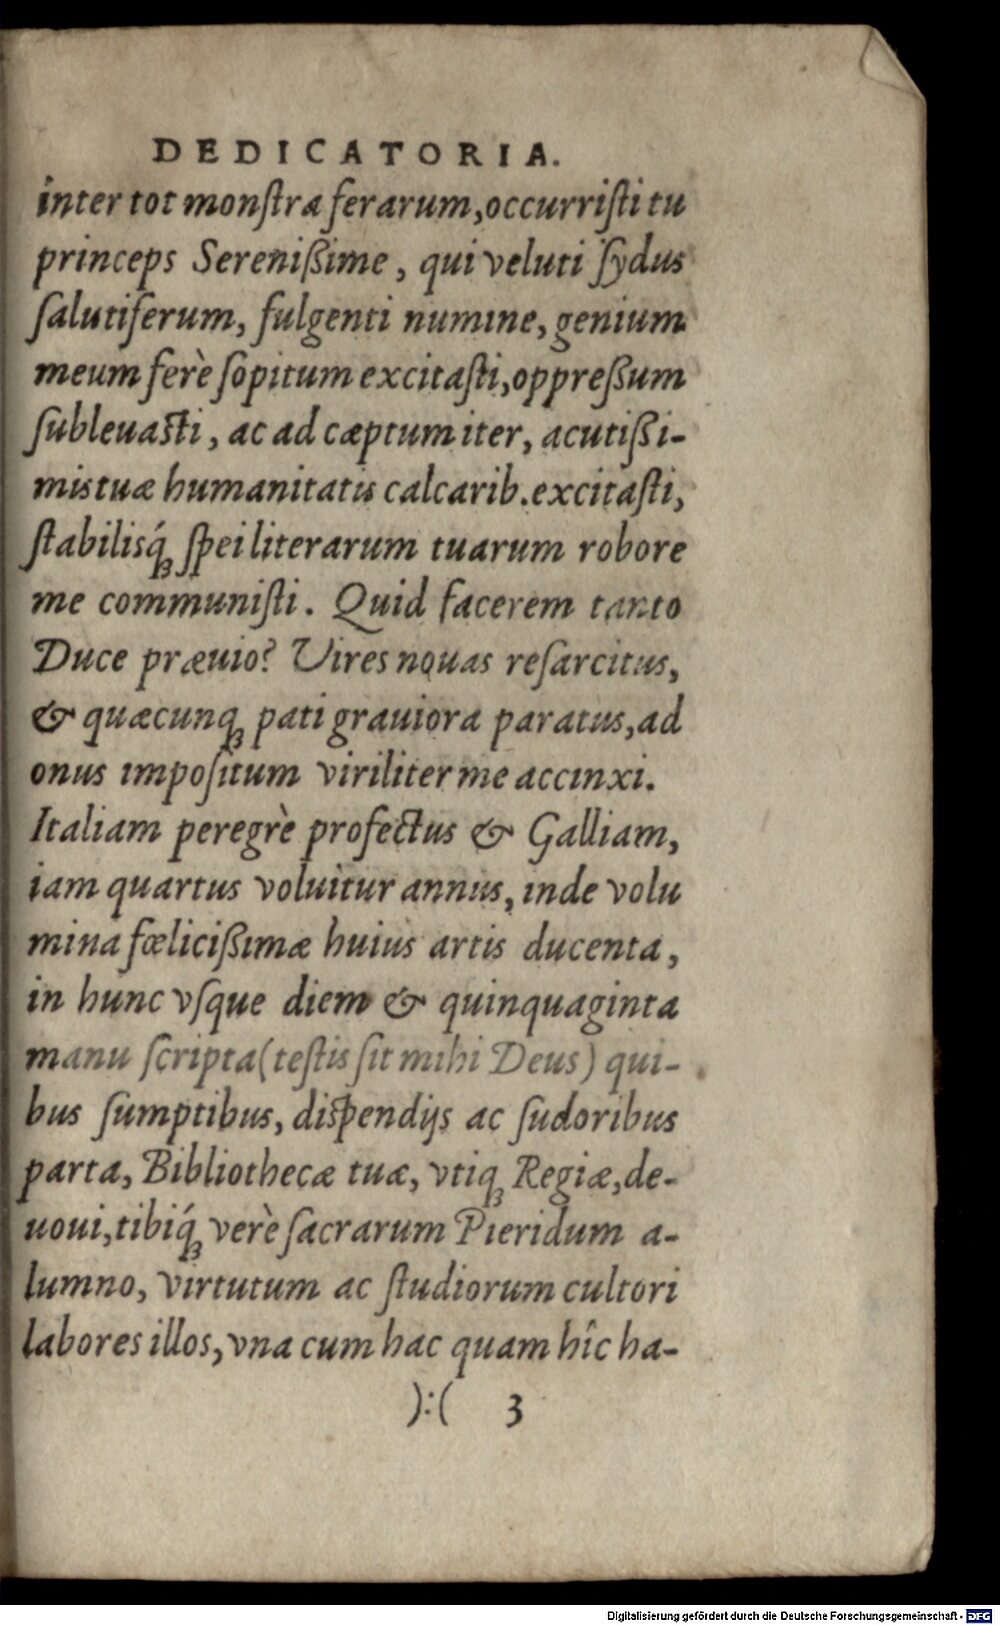 DEDICATORIA.
inter tot monſtra ferarum, occurriſti tu
princeps Serenißime, qui veluti ſydus
ſalutiferum, fulgenti numine, genium
meum ferè ſopitum excitaſti, oppreßum
ſubleuaſti, ac ad cæptum iter, acutißi-
mis tuæ humanitatis calcarib. excitaſti,
ſtabilisq́ꝫ ſpei literarum tuarum robore
me communiſti. Quid facerem tanto
Duce præuio? Vires nouas reſarcitus,
& quæcunqꝫ pati grauiora paratus, ad
onus impoſitum viriliter me accinxi.
Italiam peregrè profectus & Galliam,
iam quartus voluitur annus, inde volu
mina fœlicißimæ huius artis ducenta,
in hunc vſque diem & quinquaginta
manu ſcripta (teſtis ſit mihi Deus) qui-
bus ſumptibus, diſpendijs ac ſudoribus
parta, Bibliothecæ tuæ, vtiqꝫ Regiæ, de-
uoui, tibiq́ꝫ verè ſacrarum Pieridum a-
lumno, virtutum ac ſtudiorum cultori
labores illos, vna cum hac quam hîc ha-
):( 3
Digitalisierung gefördert durch die Deutsche Forschungsgemeinschaft - DFG